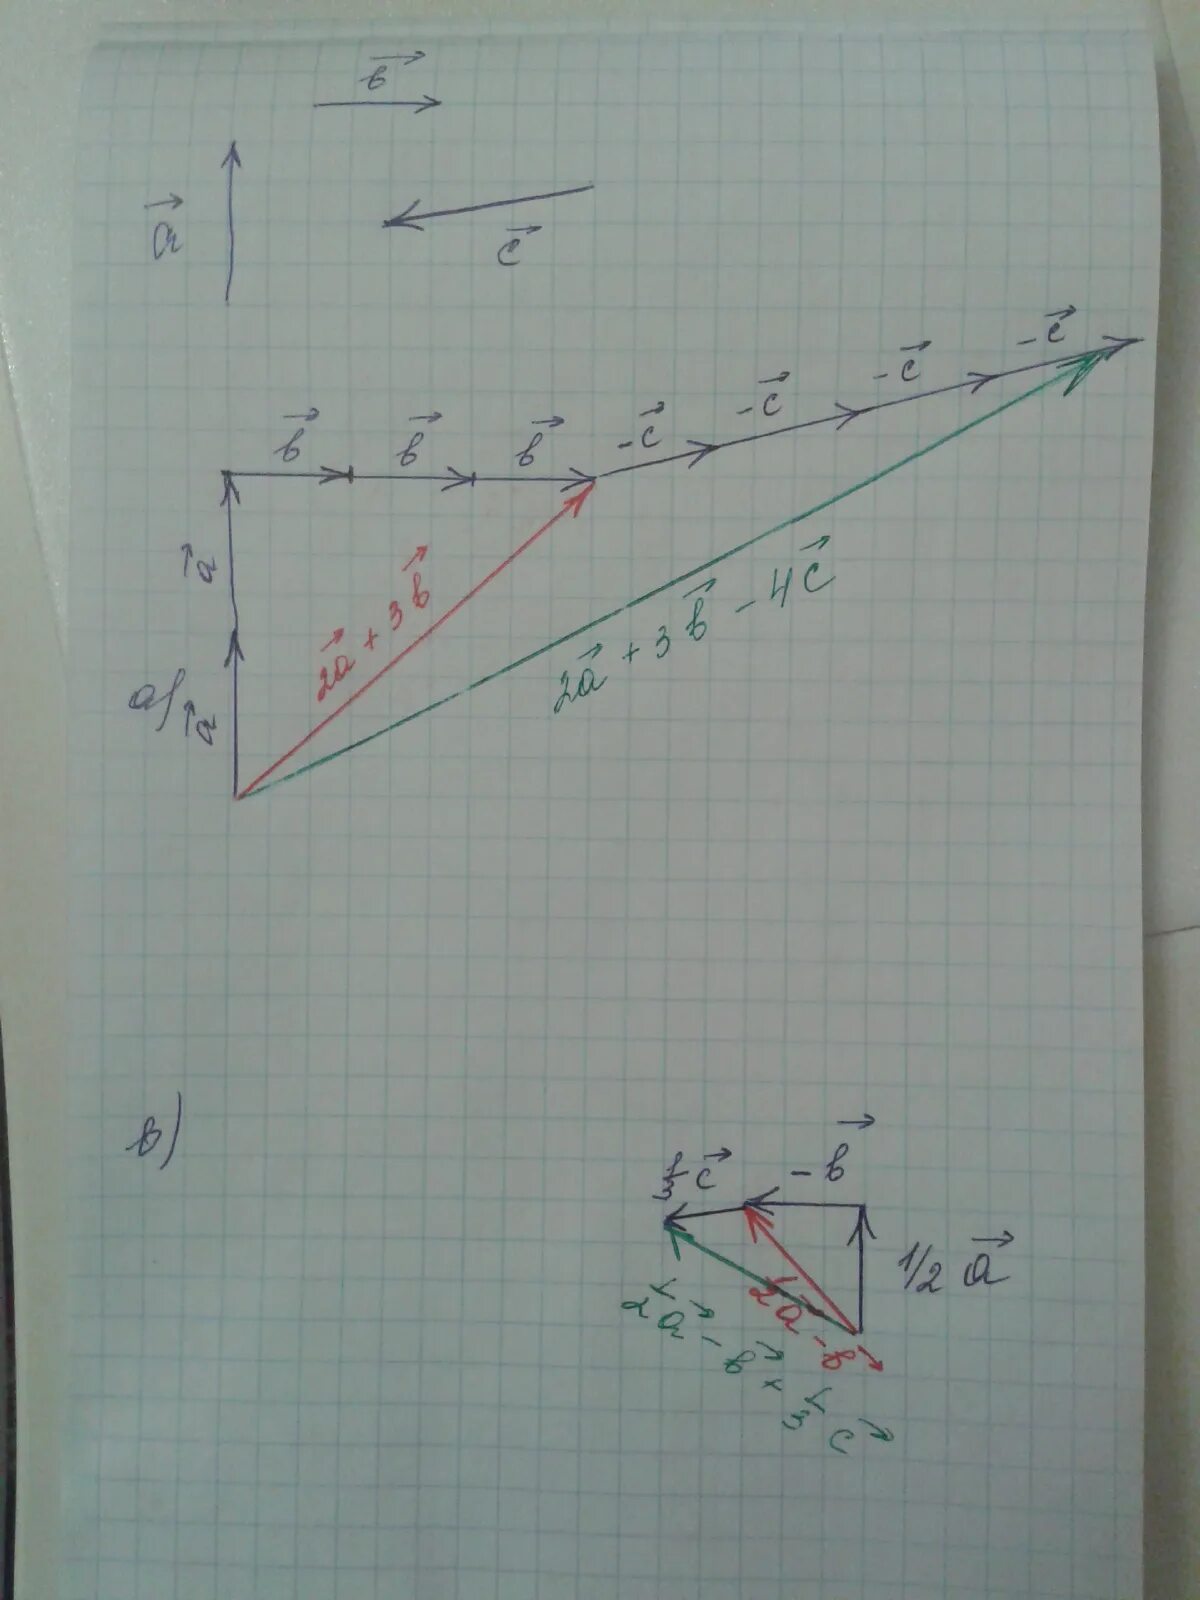 b⃗
a⃗
c⃗
b⃗ b⃗ b⃗ -c⃗ -c⃗ -c⃗ -c⃗
a⃗
а) a⃗
2a⃗ + 3b⃗
2a⃗ + 3b⃗ - 4c⃗
в)
1/3 c⃗ - b⃗
1/2 a⃗
1/2 a⃗ - b⃗
1/2 a⃗ - b⃗ + 1/3 c⃗